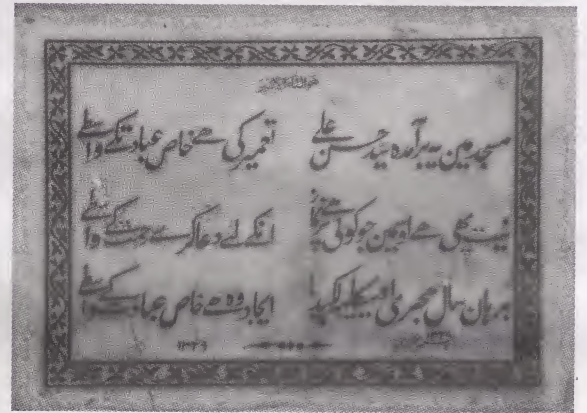 مسجد مین یہ برآمدہ سید حسن علی
تعمیر کی ھے خاص عبادت کے واسطے
نیت یہی ھے اوسمین جو کوئی پڑھے نماز
انکے لئے دعا کرے جنت کے واسطے
برہان سال ھجری
ایجاد وہ ھے خاص عبادت کے واسطے
۱۳۳۹